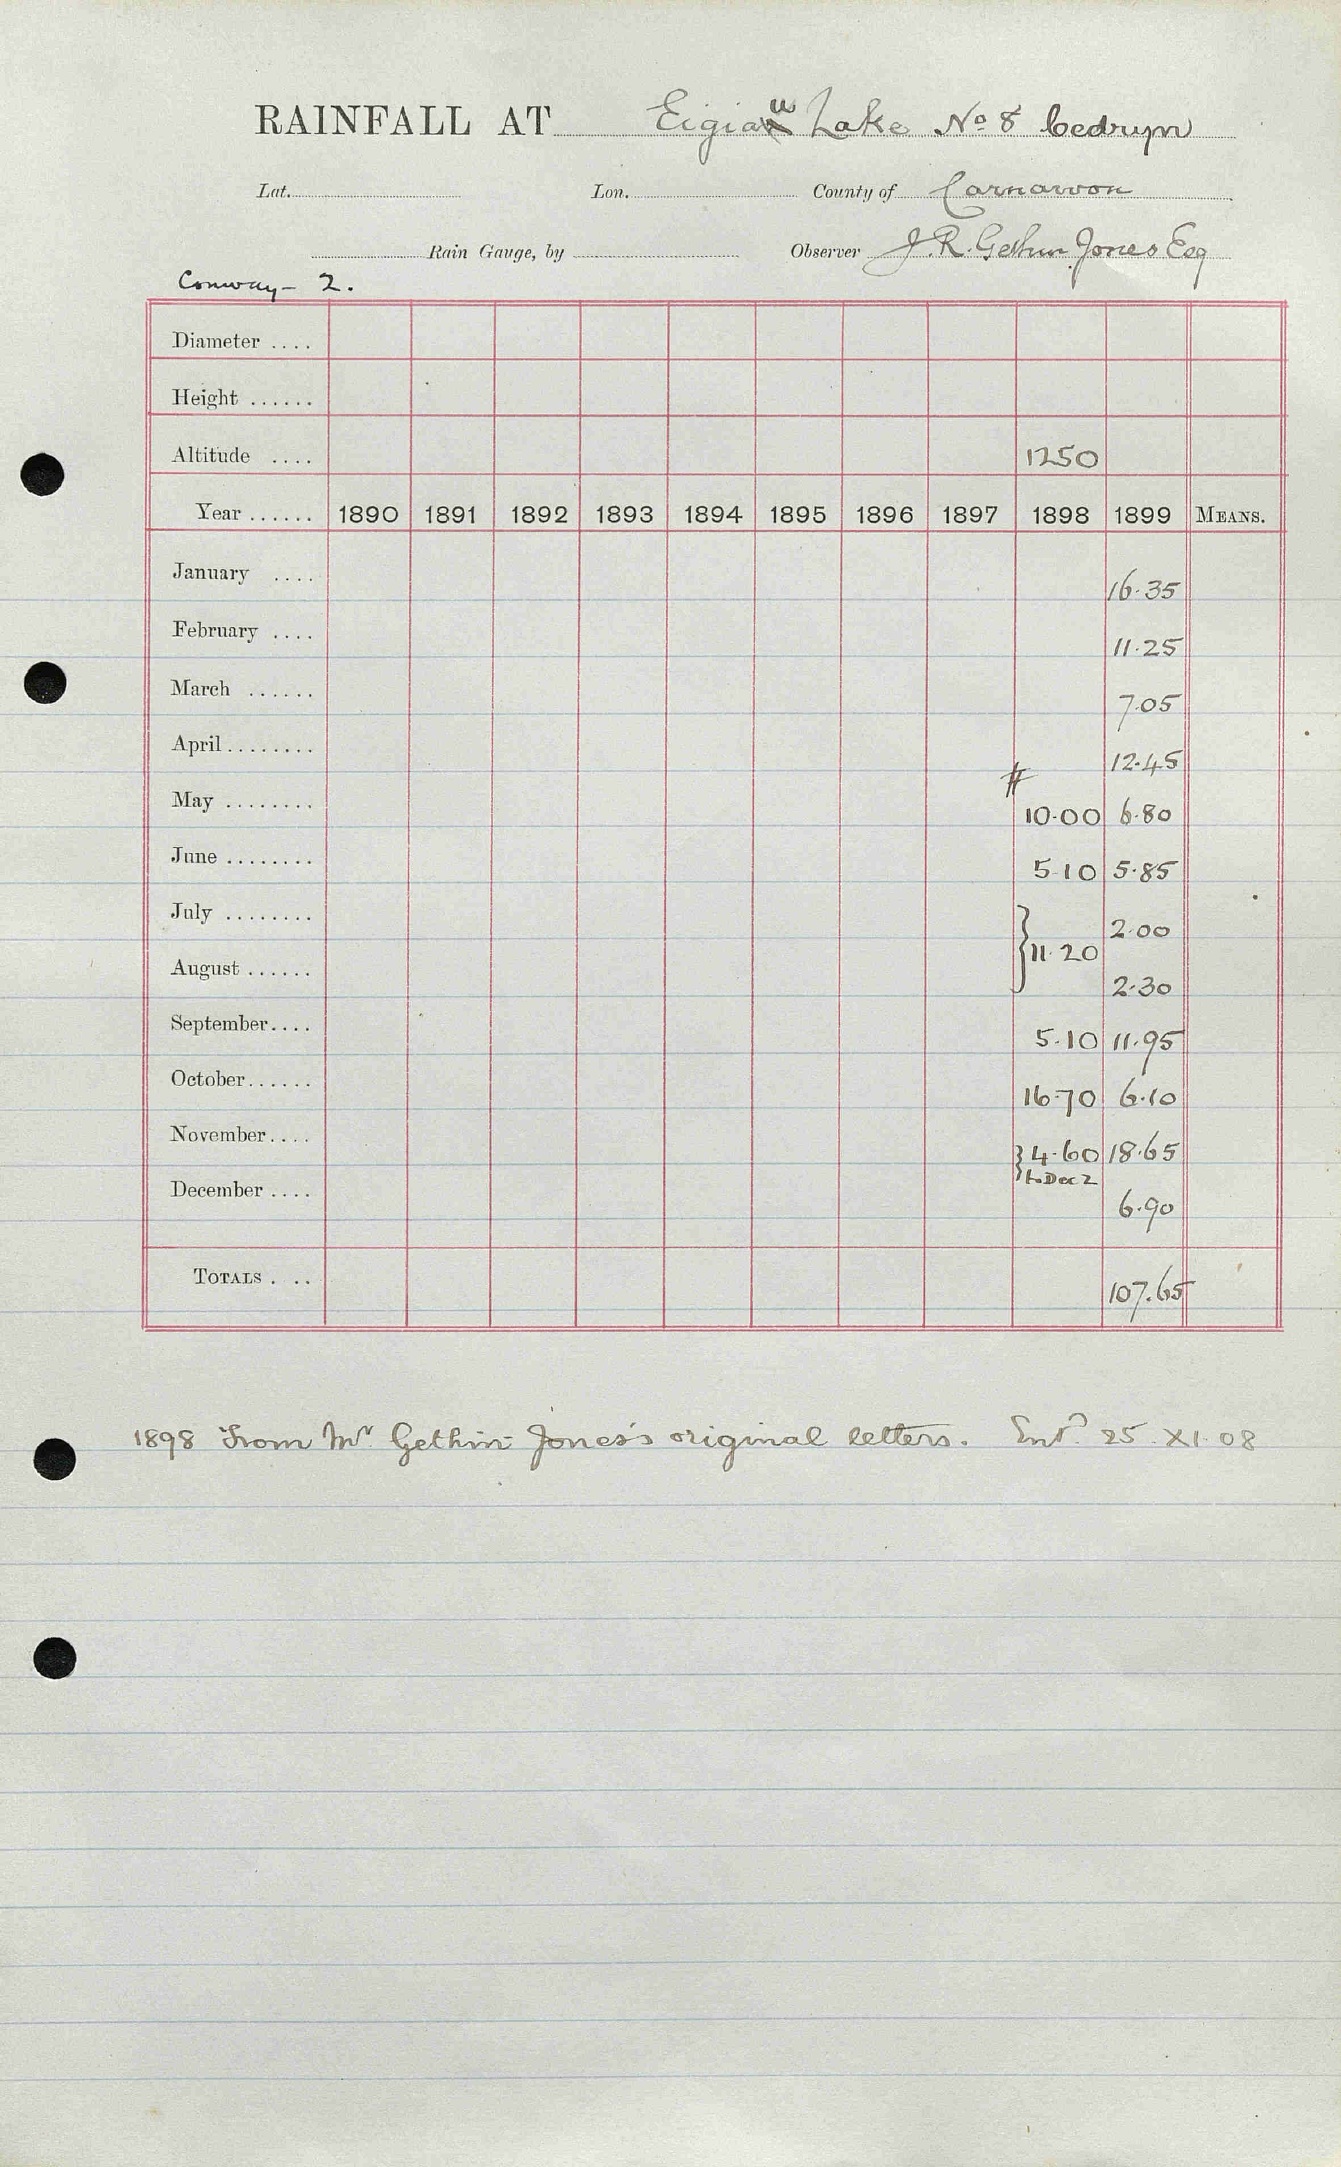 RAINFALL AT Eigiau Lake No 8 Cedryn
Lat. Lon. County of Carnarvon
Rain Gauge, by Observer J. R. Gethin Jones Esq
Conway - 2.
Diameter ....
Height ......
Altitude .... 1250
Year ...... 1890 1891 1892 1893 1894 1895 1896 1897 1898 1899 MEANS.
January .... 16.35
February .... 11.25
March ...... 7.05
April ........ 12.45
May ........ # 10.00 6.80
June ........ 5.10 5.85
July ........ 2.00
} 11.20
August ...... 2.30
September.... 5.10 11.95
October...... 16.70 6.10
November.... } 4.60 18.65
to Dec 2
December .... 6.90
TOTALS . .. 107.65
1898 From Mr Gethin Jones's original letters. Entd 25 XI 08